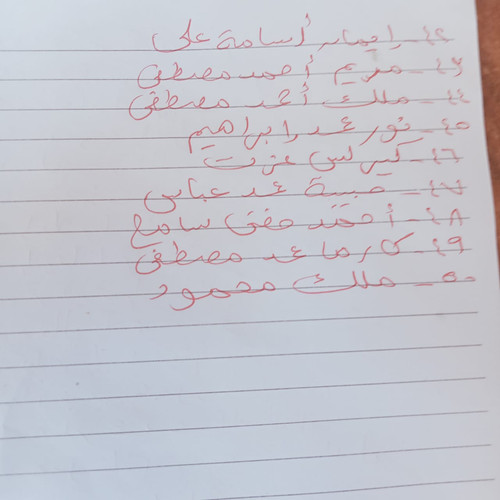 ٤٢- إيمان أسامة على
٤٣- مريم أحمد مصطفى
٤٤- ملك أحمد مصطفى
٤٥- نور محمد إبراهيم
٤٦- كيرلس عزت
٤٧- حبيبة محمد عباس
٤٨- أحمد حفنى سامح
٤٩- كارما محمد مصطفى
٥٠- ملك محمود